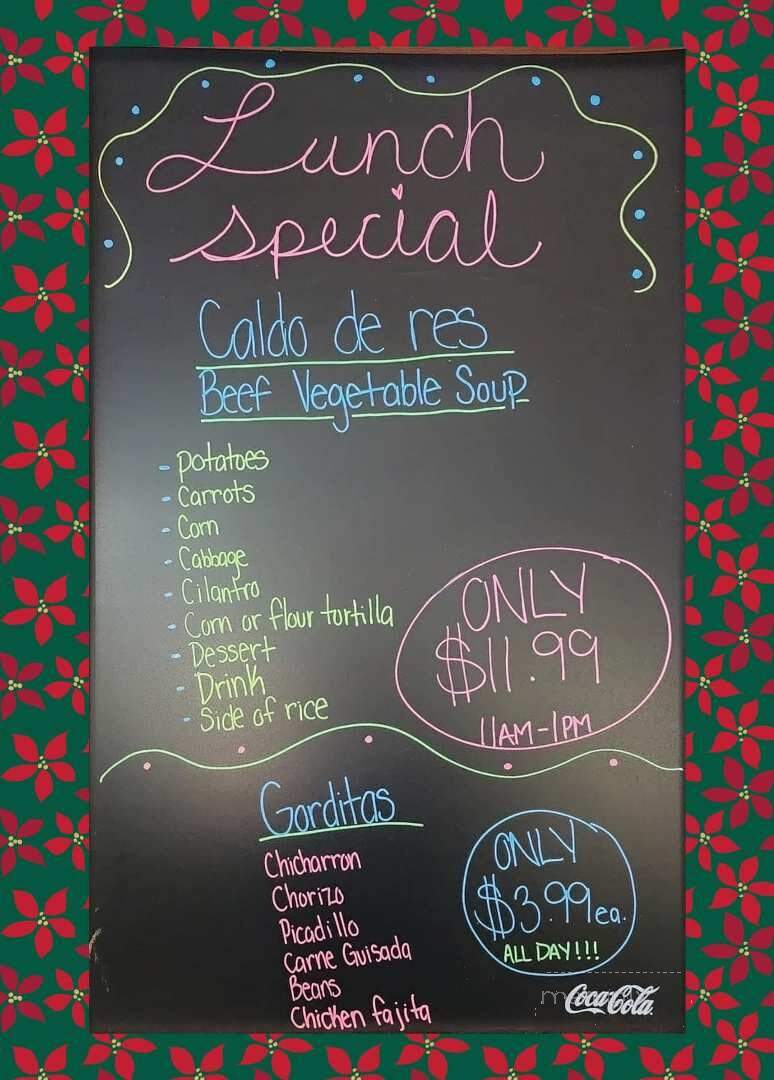 Lunch
special
Caldo de res
Beef Vegetable Soup
- Potatoes
- Carrots
- Corn
- Cabbage
- Cilantro
- Corn or flour tortilla
- Dessert
- Drink
- Side of rice
ONLY
$11.99
11AM-1PM
Gorditas
Chicharron
Chorizo
Picadillo
Carne Guisada
Beans
Chicken fajita
ONLY
$3.99 ea.
ALL DAY!!!
Coca-Cola